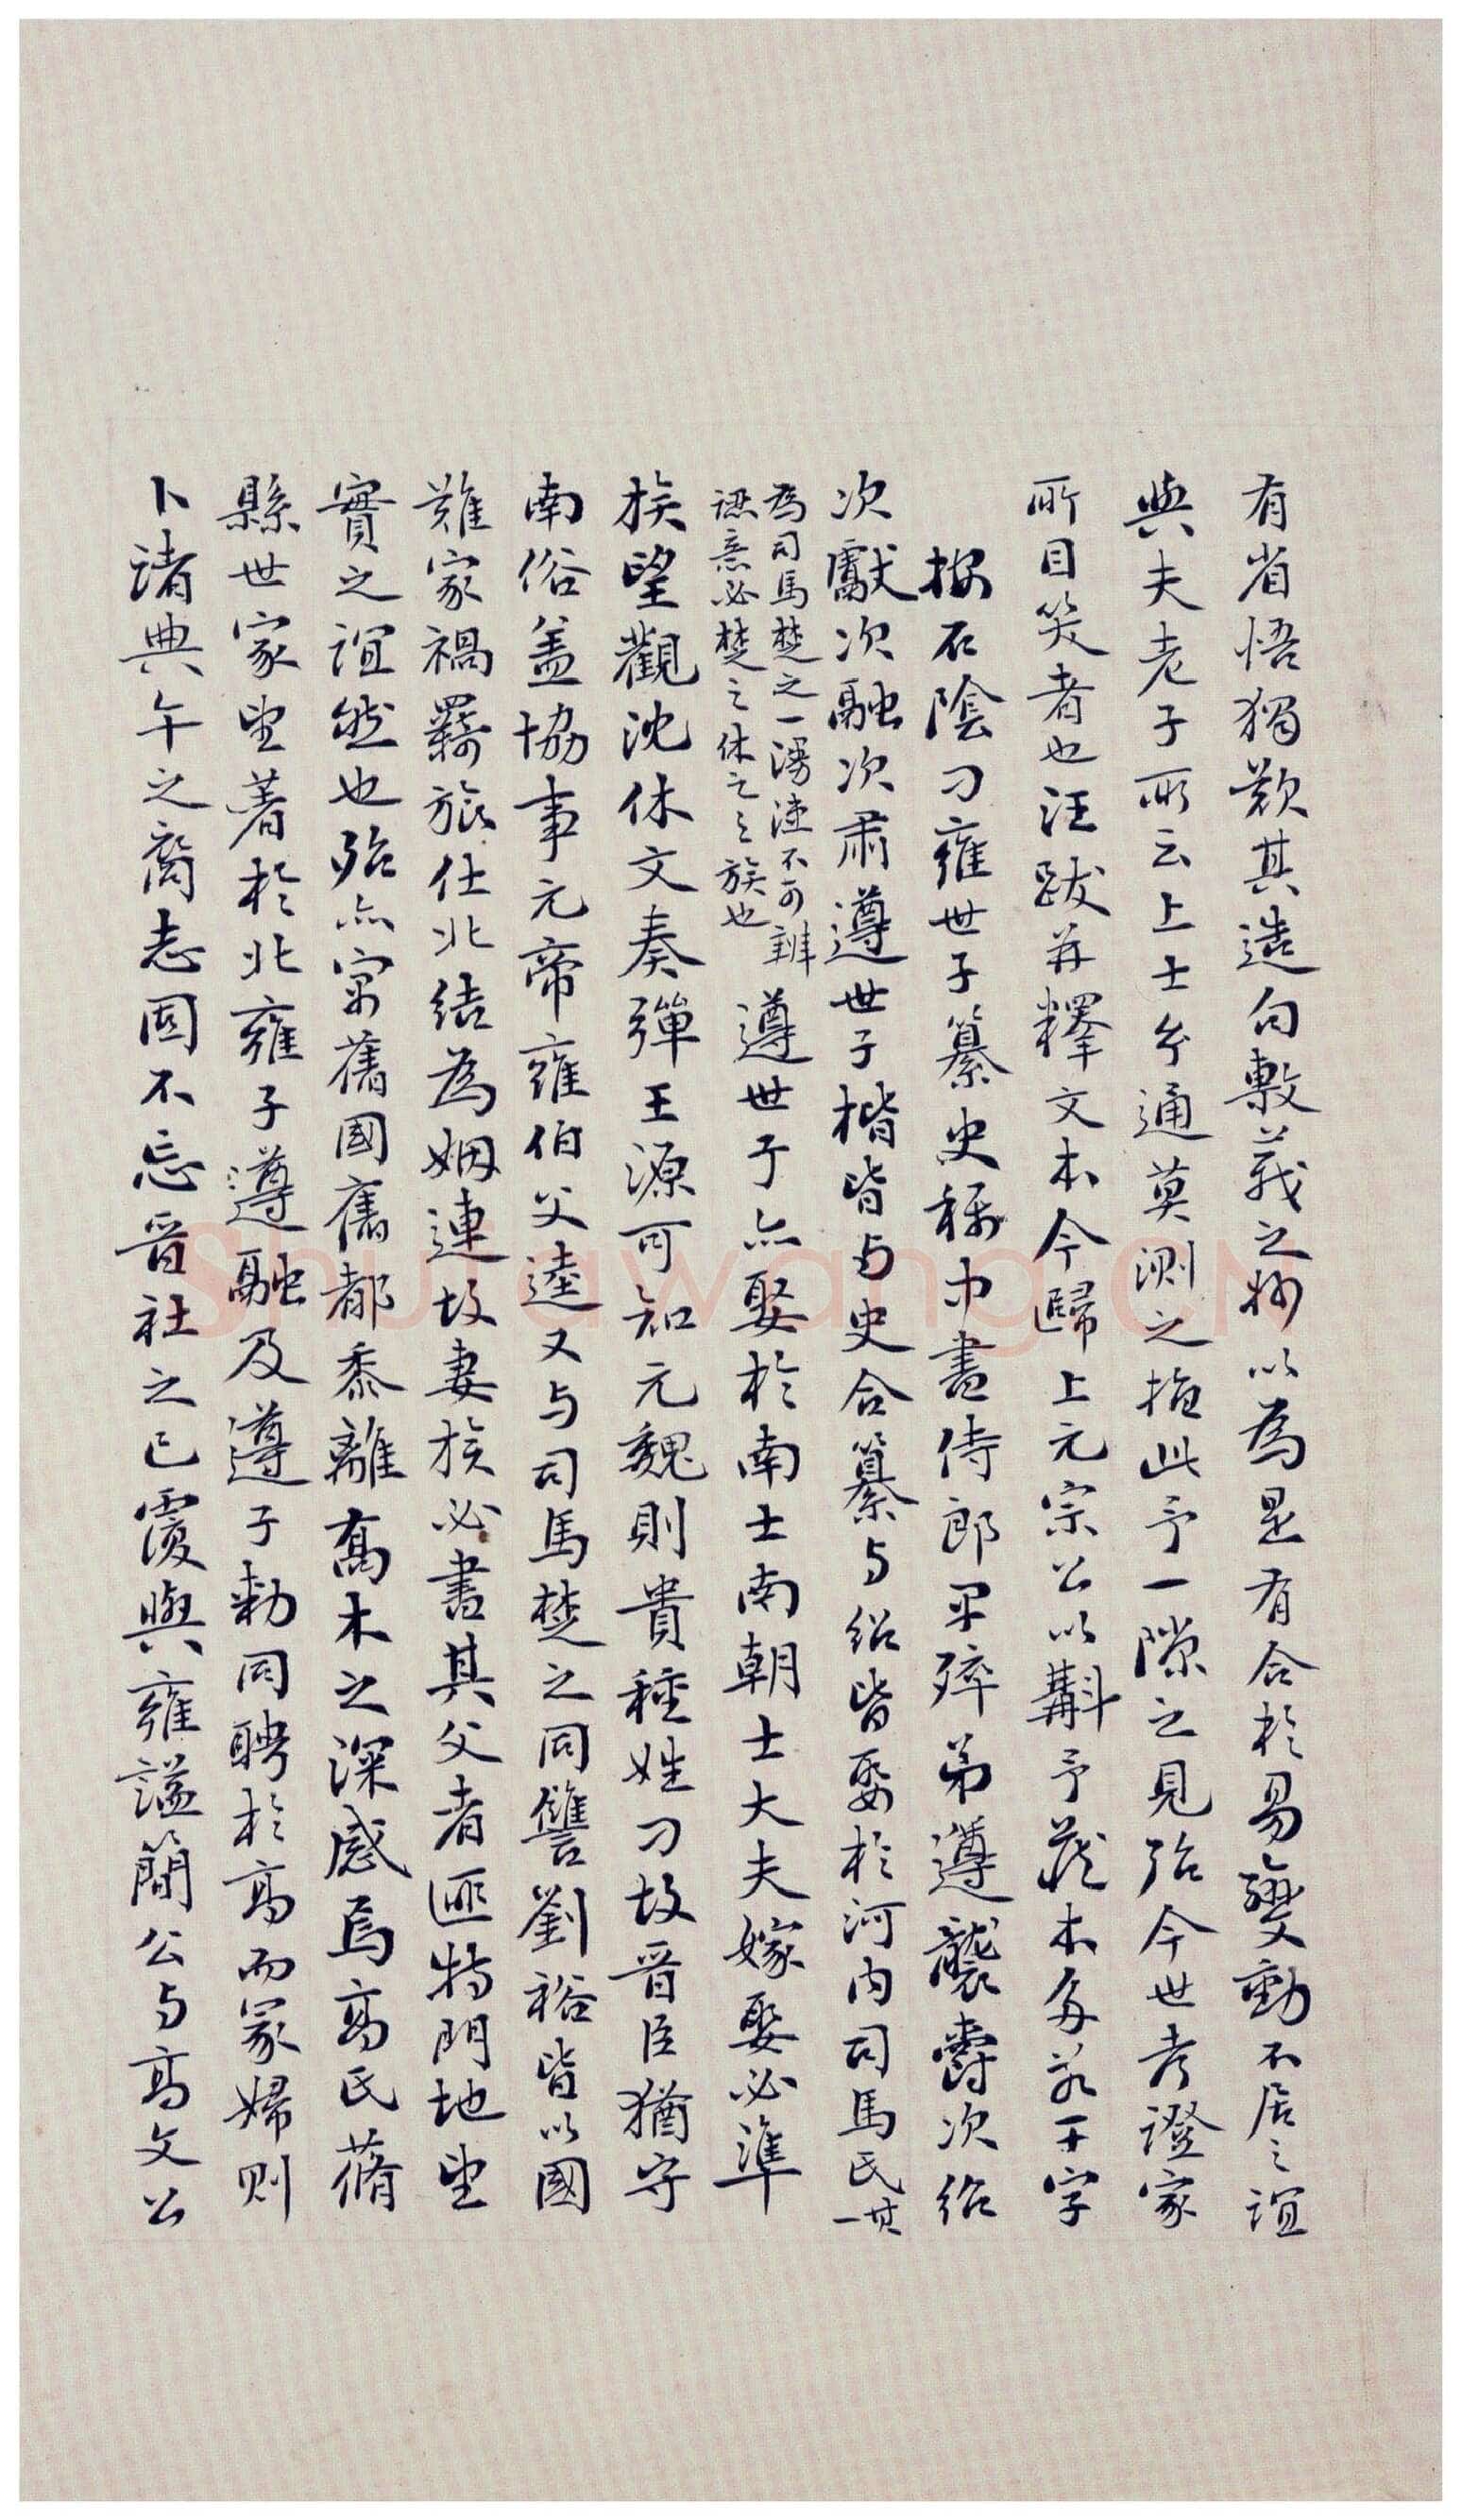 有省悟獨歎其造句敷義之妙以為是有合於易變動不居之誼
與夫老子所云上士兮通莫測之指此予一隙之見殆今世考證家
所目笑者也汪跋并釋文本今歸上元宗公以斠予藏本多若干字
按石陰刁雍世子纂史稱中書侍郎早殍弟遵襲爵次紹
次獻次融次肅遵世子楷皆与史合纂与紹皆娶於河內司馬氏一其
為司馬楚之一漫湮不可辨
諗意必楚之休之之族也
遵世子亦娶於南士南朝士大夫嫁娶必準
族望觀沈休文奏彈王源可知元魏則貴種姓刁故晋臣猶守
南俗盖協事元帝雍伯父逵又与司馬楚之同讐劉裕皆以國
難家禍羇旅仕北結為姻連故妻族必書其父者匪特門地望
實之誼然也殆亦寓舊國舊都黍離喬木之深感焉高氏蓨
縣世家望著於北雍子遵融及遵子勑同聘於高而冢婦則
卜諸典午之裔志固不忘晋社之已覆與雍謚簡公与高文公